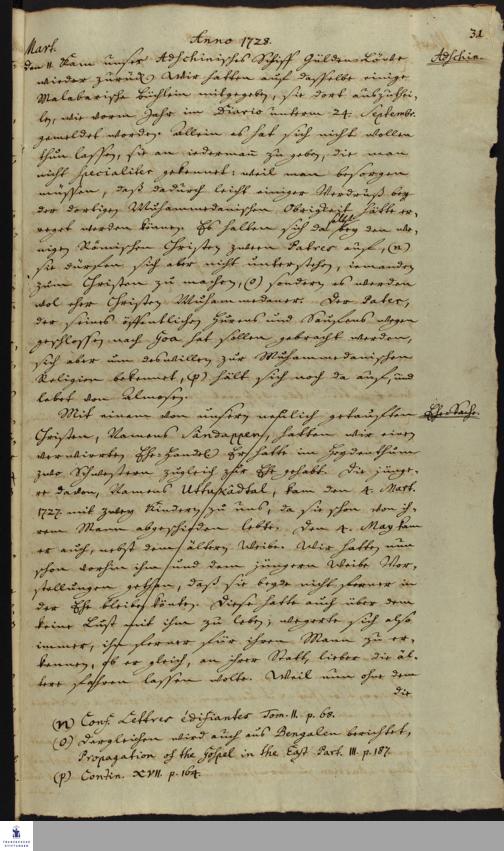 31
Anno 1728.
Mart.
Adschin.
den 11. Kam unser Adschinisches Schiff Gülden-Löwe
wieder zurück. Wir hatten auf dasselbe einige
Malabarische Büchlein mitgegeben, sie dort auszuthei-
len, wie vorm Jahr im Diario unterm 24. Septembr.
gemeldet worden. Allein es hat sich nicht wollen
thun lassen, sie an iedermañ zu geben, die man
nicht specialiter gekennet: weil man besorgen
müssen, daß dadurch leicht einiger Verdruß bey
der dortigen Muhammedanischen Obrigkeit hätte er-
reget werden können. Es halten sich da bey den we-
nigen Römischen Christen zween Patres auf, (n)
sie dürfen sich aber nicht unterstehen, iemanden
zum Christen zu machen, (o) sondern es werden
wol eher Christen Muhammedaner. Der Pater,
der seines öffentlichen Hurens und Saufens wegen
geschlossen nach Goa hat sollen gebracht werden,
sich aber um deswillen zur Muhammedanischen
Religion bekennet, (p) hält sich noch da auf, und
lebet von Almosen.
Ehe-Sache.
Mit einem von unsern neulich getauften
Christen, Namens Sandappen, hatten wir einen
verwirrten Ehe-Handel. Er hatte im Heydenthum
zwo Schwestern zugleich zur Ehe gehabt. Die jünge-
re davon, Namens Uttakádtal, kam den 4. Mart.
1727. mit zwey Kindern zu uns, da sie schon von ih-
rem Mann abgeschieden lebte. Den 4. May kam
er auch, nebst dem ältern Weibe. Wir hatten nun
schon vorhin ihm und dem jüngern Weibe Vor-
stellungen gethan, daß sie beyde nicht ferner in
der Ehe bleiben könten. Diese hatte auch über dem
keine Lust mit ihm zu leben; wegerte sich also
immer, ihn ferner für ihren Mann zu er-
kennen, ob er gleich, an ihrer Statt, lieber die äl-
tere fahren lassen wolte. Weil nun ohne dem
die
(n) Conf. Lettres édifiantes Tom. II. p. 68.
(o) Dergleichen wird auch aus Bengalen berichtet,
Propagation of the Gospel in the East Part. III. p. 187.
(p) Contin. XVII. p. 164.
FRANCKESCHE
STIFTUNGEN